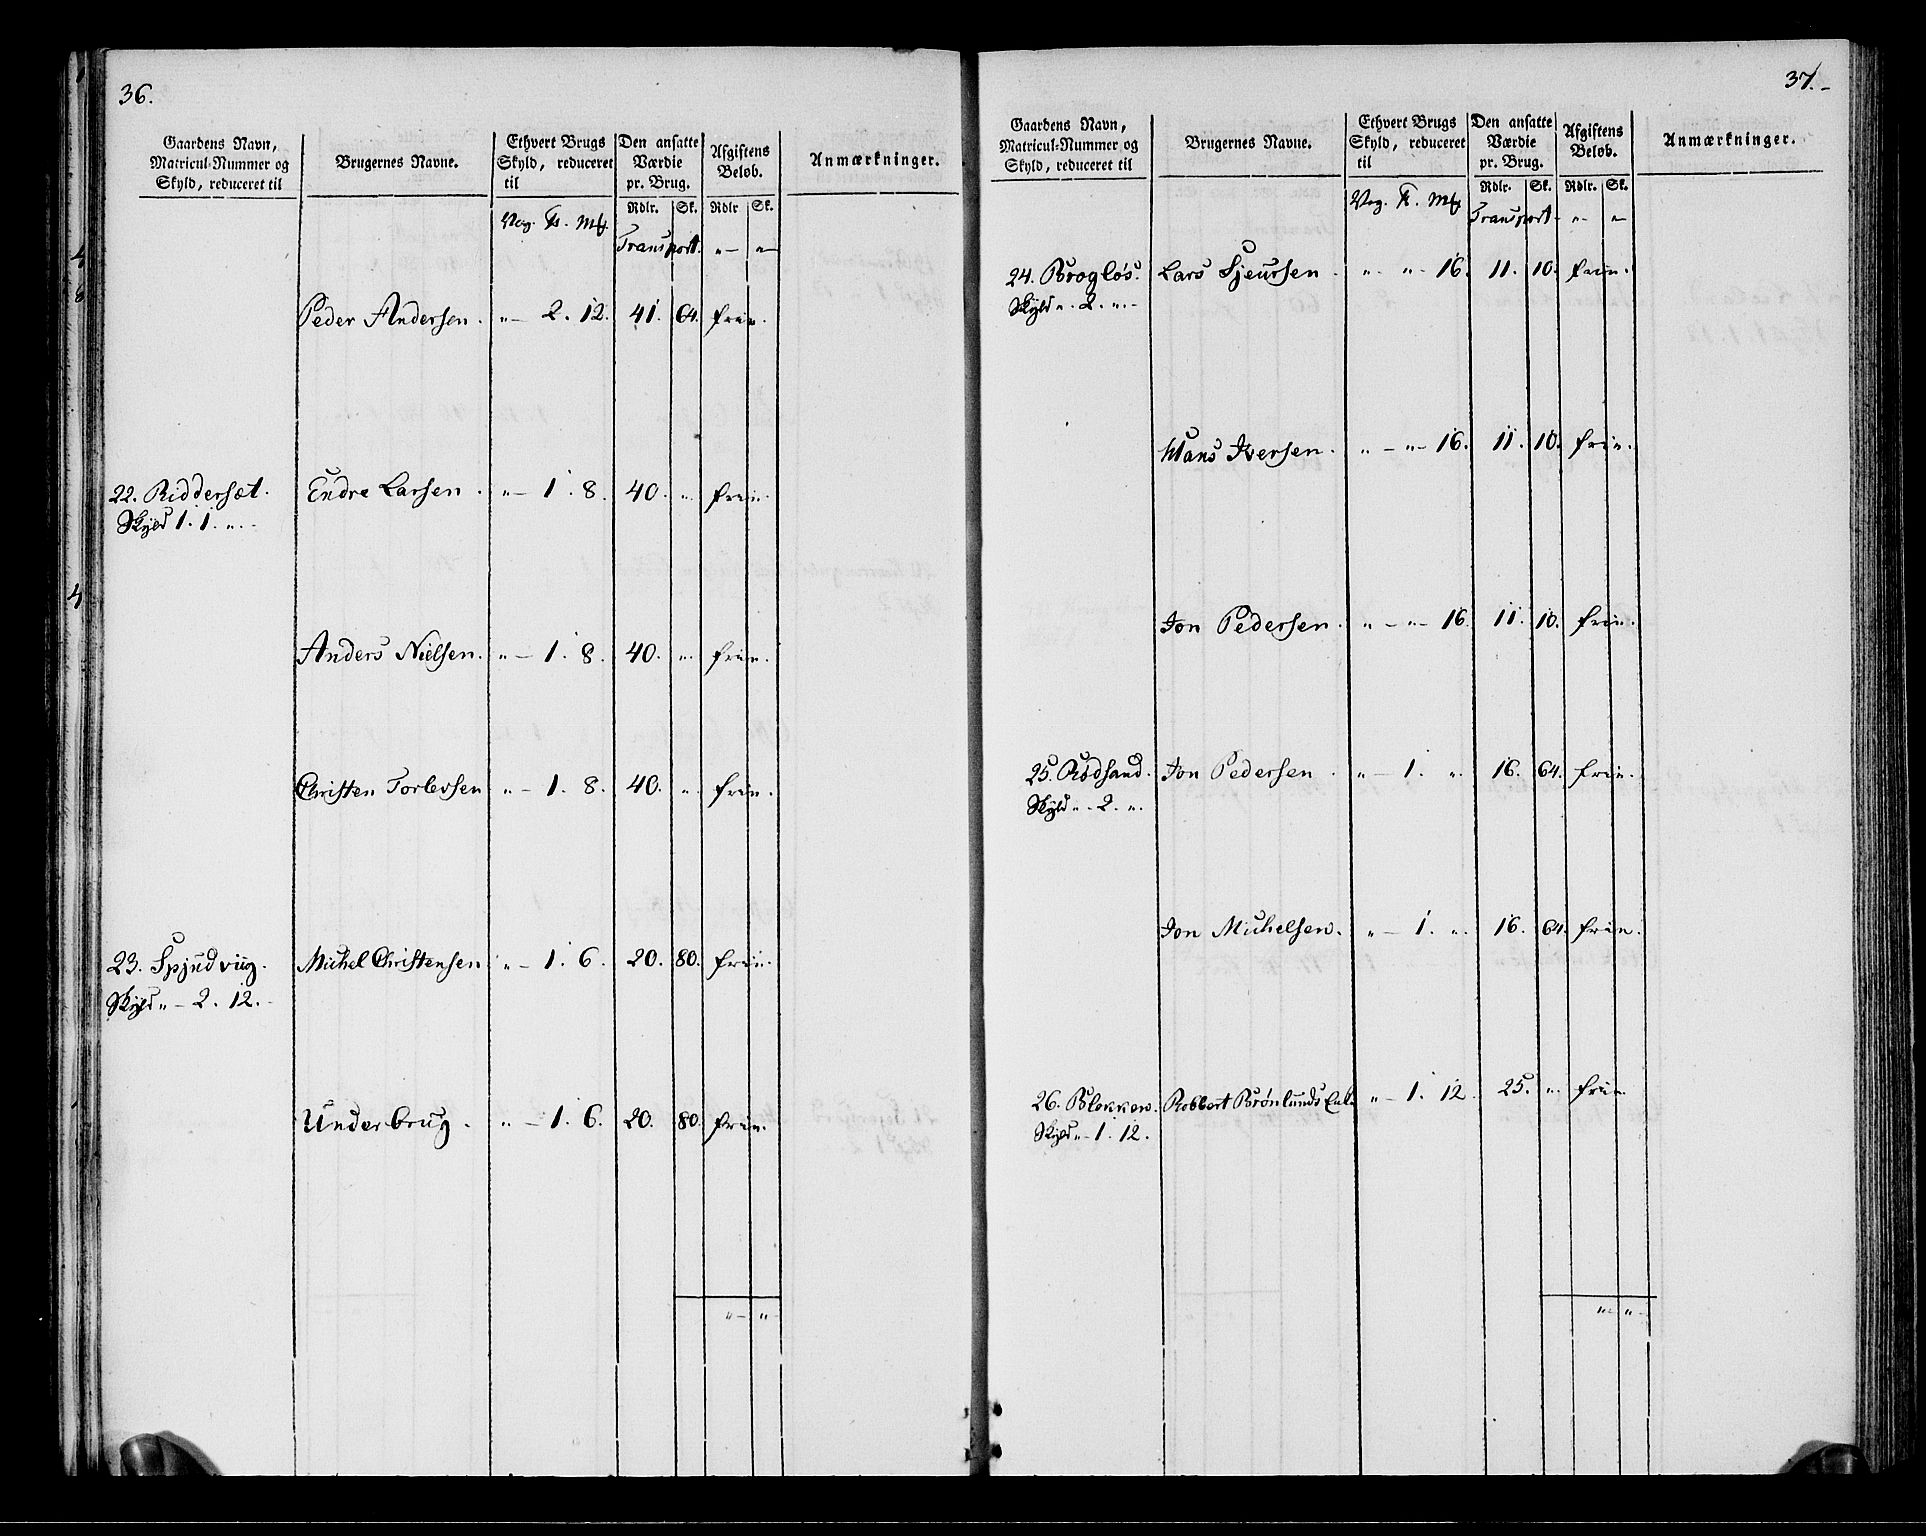 36.
Gaardens Navn, Matricul-Nummer og Skyld, reduceret til
Brugernes Navne.
Ethvert Brugs Skyld, reduceret til
Den ansatte Værdie pr. Brug.
Afgiftens Beløb.
Anmærkninger.
Vog. Mk.
Rdlr. Sk. Rdlr Sk.
Transport. „ — „ —
Peder Andersen. „ — 2. 12. 41. 64. frie.
22. Riddersæt. Endre Larsen. „ — 1. 8. 40. „ frie.
Skyld 1. 1. „ —
Anders Nielsen. „ — 1. 8. 40. „ frie.
Christen Torlevsen „ — 1. 8. 40. „ frie.
23. Spjudviig. Michel Christensen „ — 1. 6. 20. 80. frie.
Skyld „ — 2. 12. —
Underbrug. „ — 1. 6. 20. 80. frie.
„ — „ —
37. —
Gaardens Navn, Matricul-Nummer og Skyld, reduceret til
Brugernes Navne.
Ethvert Brugs Skyld, reduceret til
Den ansatte Værdie pr. Brug.
Afgiftens Beløb.
Anmærkninger.
Vog. Mk.
Rdlr. Sk. Rdlr. Sk.
Transport. „ — „ —
24. Brogløs. Lars Sjeursen. „ — „ — 16. 11. 10. frie.
Skyld „ . 2. „ —
Hans Iversen. „ — „ — 16. 11. 10. frie.
Jon Pedersen. „ — „ — 16. 11. 10. frie.
25. Rødsand. Jon Pedersen. „ — 1. „ 16. 64. frie.
Skyld „ — 2. „
Jon Michelsen. „ — 1. „ 16. 64. frie.
26. Blekken. Robbert Brønlunds Enke „ — 1. 12. 25. „ frie
Skyld „ — 1. 12.
„ — „ —